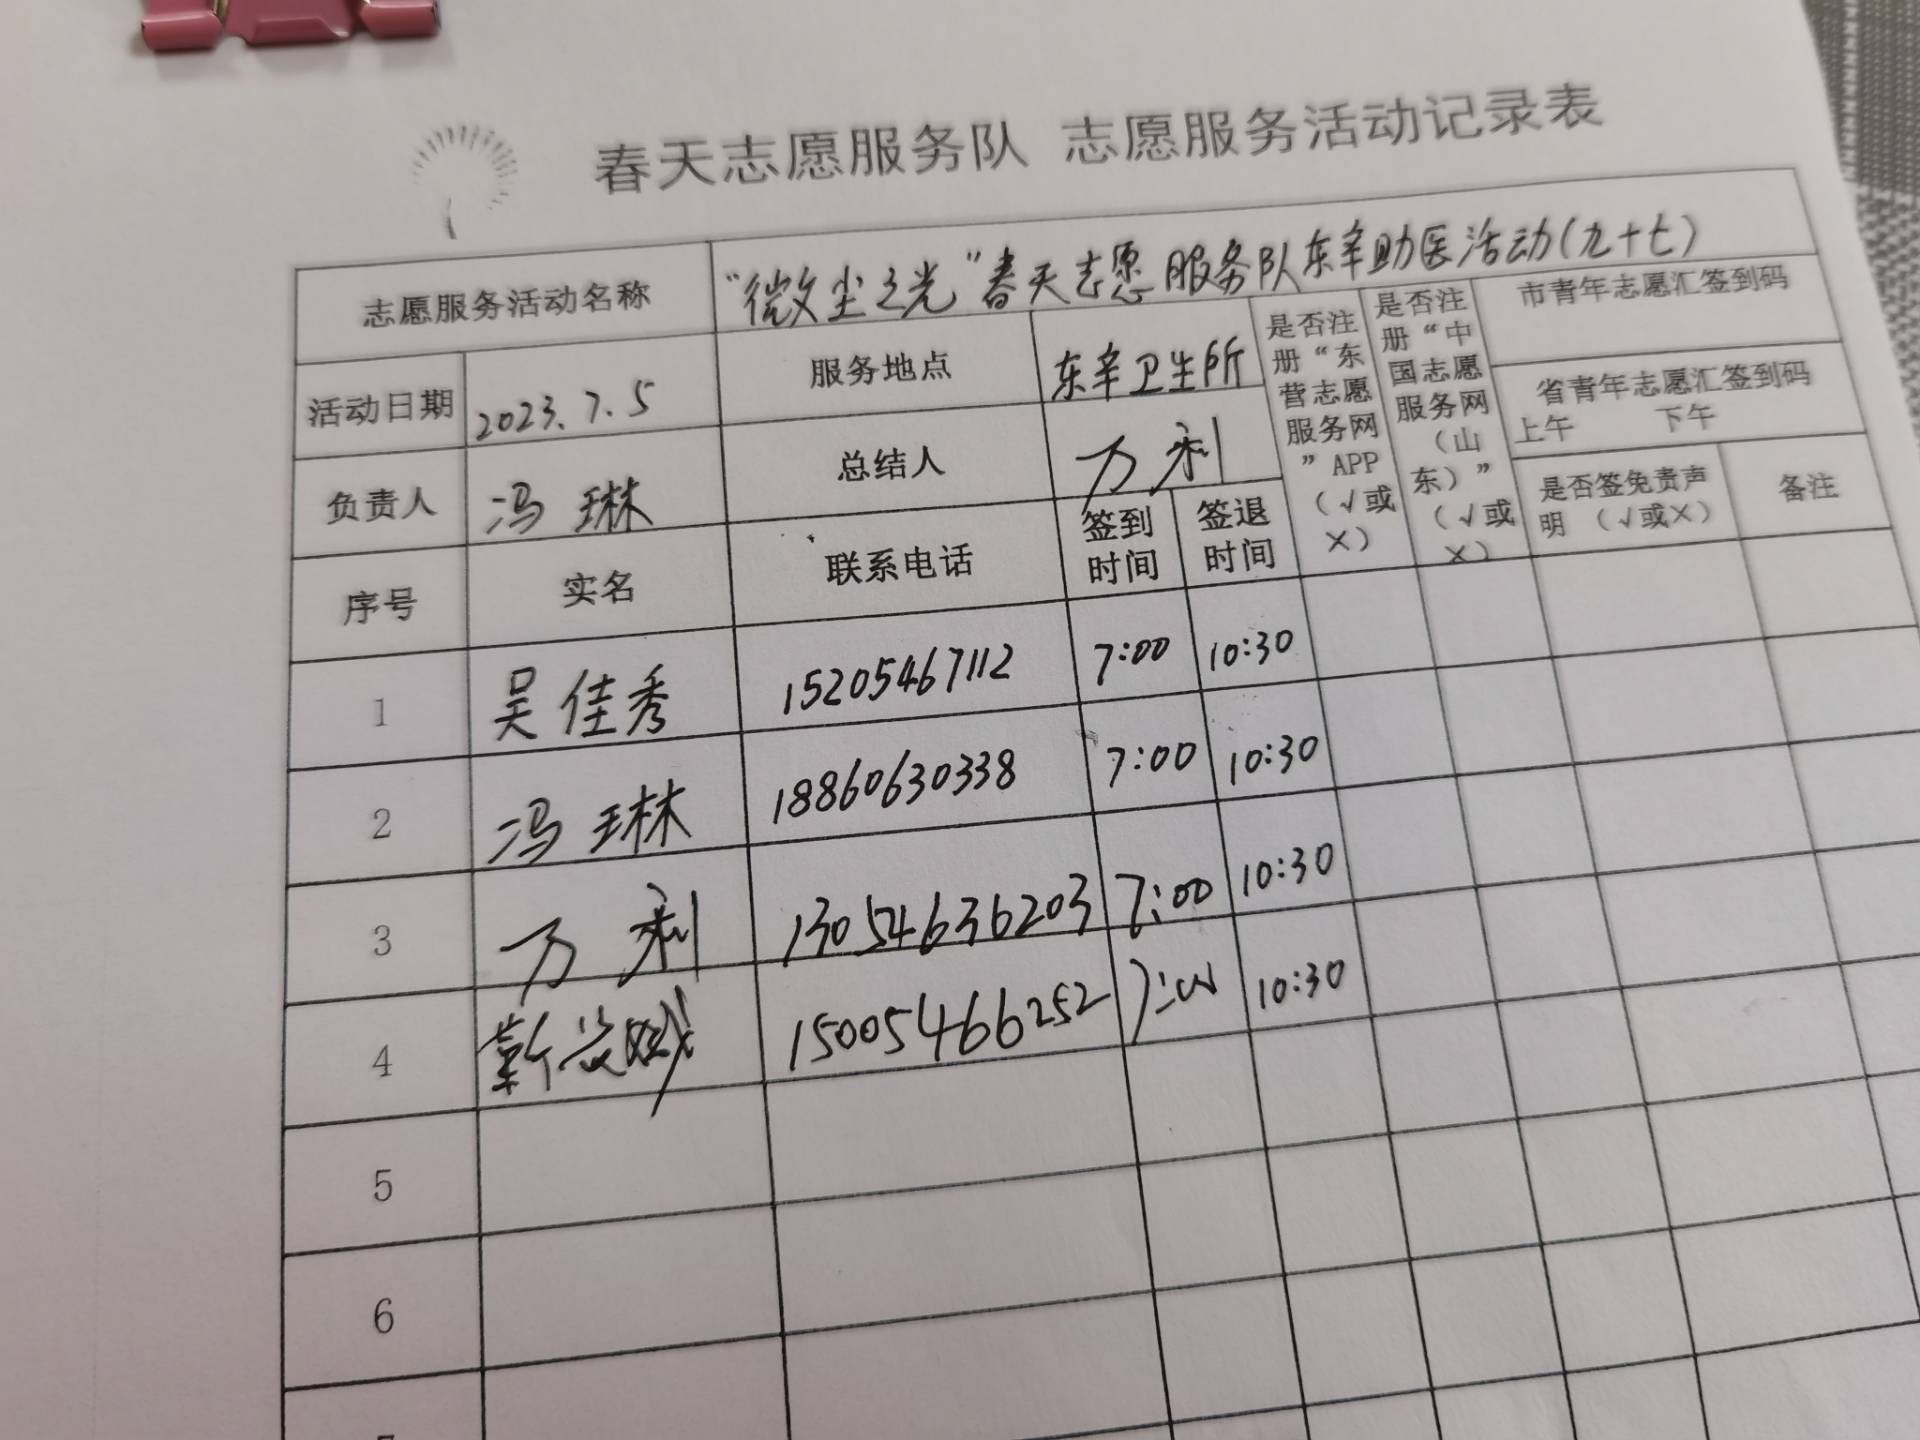 春天志愿服务队 志愿服务活动记录表
志愿服务活动名称 “微尘之光”春天志愿服务队东辛助医活动(九十七)
活动日期 2023.7.5 服务地点 东辛卫生所
负责人 冯琳 总结人 万利
是否注册“东营志愿服务网”APP（√或×）
是否注册“中国志愿服务网（山东）”（√或×）
市青年志愿汇签到码
省青年志愿汇签到码
上午 下午
是否签免责声明 （√或×） 备注
序号 实名 联系电话 签到时间 签退时间
1 吴佳秀 15205467112 7:00 10:30
2 冯琳 18860630338 7:00 10:30
3 万利 13054636203 7:00 10:30
4 15005466252 7:00 10:30
5
6